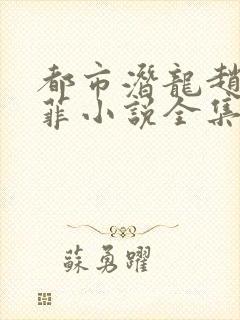 都市潛龍趙
菲小說全集
蘇勇躍